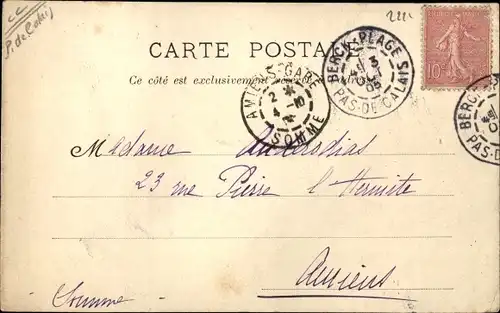 CC
P. de Calais
222
CARTE POSTALE
Ce côté est exclusivement réservé
BERCK-PLAGE
3
05
PAS-DE-CALAIS
AMIENS-GARE
2
4 -10
SOMME
10
BERCK
PAS-D
Madame
23 rue Pierre l'Hermite
Amiens
Somme